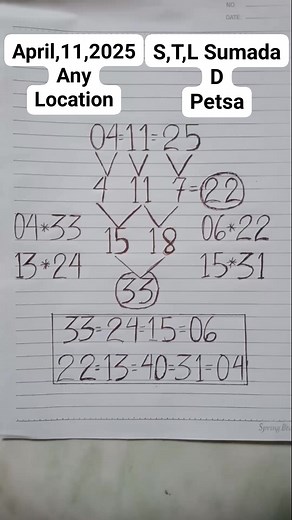 NO
DATE
April,11,2025
Any
Location
S,T,L Sumada
D
Petsa
04=11=25
4 11 7=22
04*33 15 18 06*22
13*24 15*31
33
33=24=15=06
22=13=40=31=04